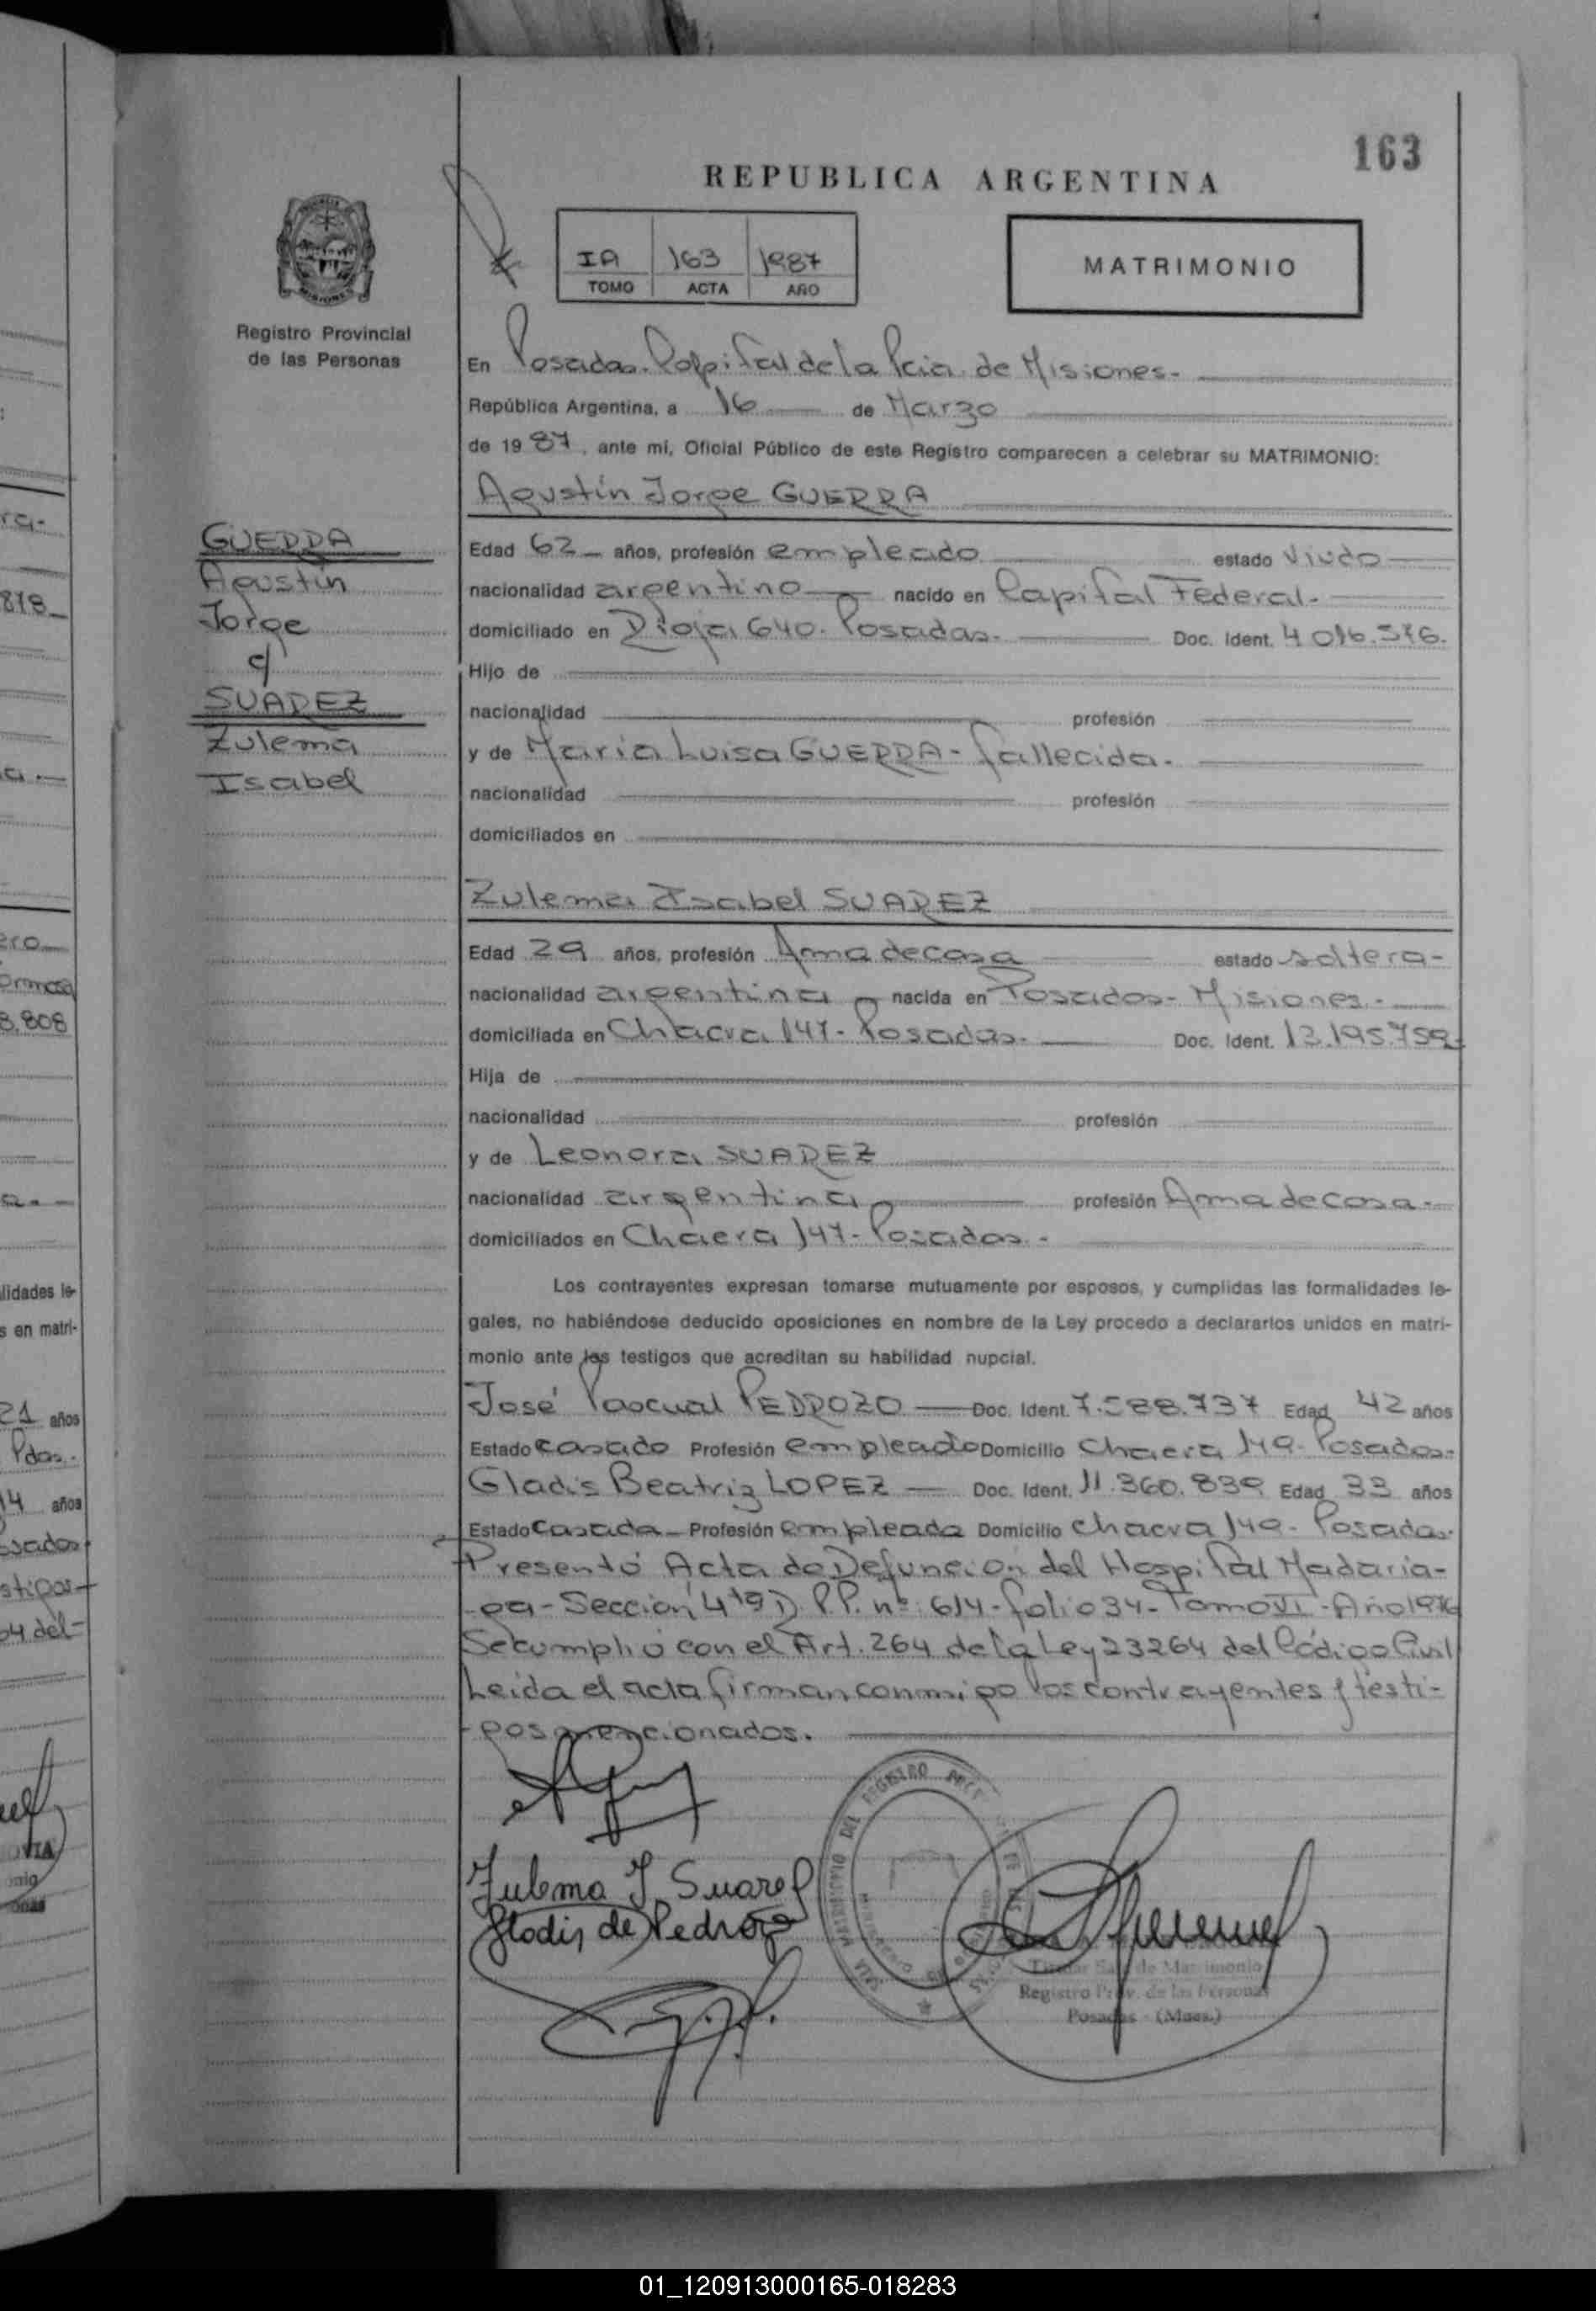 163
REPUBLICA ARGENTINA
IA 163 1987
TOMO ACTA AÑO
MATRIMONIO
Registro Provincial
de las Personas
En Posadas. Capital de la Pcia. de Misiones.-
República Argentina, a 16 de Marzo
de 1987, ante mi, Oficial Público de este Registro comparecen a celebrar su MATRIMONIO:
Agustín Jorge GUERRA
GUERRA
Agustín
Jorge
c/
SUAREZ
Zulema
Isabel
Edad 62 años, profesión empleado estado Viudo
nacionalidad argentino nacido en Capital Federal.-
domiciliado en Rioja 640. Posadas.- Doc. Ident. 4.016.576.
Hijo de
nacionalidad profesión
y de María Luisa GUERRA - fallecida.
nacionalidad profesión
domiciliados en
Zulema Isabel SUAREZ
Edad 29 años, profesión Ama de casa estado soltera-
nacionalidad argentina nacida en Posadas- Misiones.-
domiciliada en Chacra 147- Posadas.- Doc. Ident. 13.195.759-
Hija de
nacionalidad profesión
y de Leonora SUAREZ
nacionalidad argentina profesión Ama de casa.-
domiciliados en Chacra 147- Posadas.-
Los contrayentes expresan tomarse mutuamente por esposos, y cumplidas las formalidades le-
gales, no habiéndose deducido oposiciones en nombre de la Ley procedo a declararlos unidos en matri-
monio ante los testigos que acreditan su habilidad nupcial.
José Pascual PEDROZO Doc. Ident. 7.588.737 Edad 42 años
Estado casado Profesión empleado Domicilio Chacra 149- Posadas.-
Gladis Beatriz LOPEZ Doc. Ident. 11.360.839 Edad 33 años
Estado casada Profesión empleada Domicilio chacra 149- Posadas.
Presentó Acta de Defunción del Hospital Madaria-
-ga- Sección 4ta R.P.P. nº: 614- folio 34- Tomo VI- Año 1976
Se cumplió con el Art. 264 de la Ley 23264 del Código Civil
Leída el acta firman conmigo los contrayentes y testi-
-gos mencionados.
Zulema I. Suarez
Gladis de Pedrozo
Titular Sala de Matrimonio
Registro Prov. de las Personas
Posadas - (Mnes.)
01_120913000165-018283